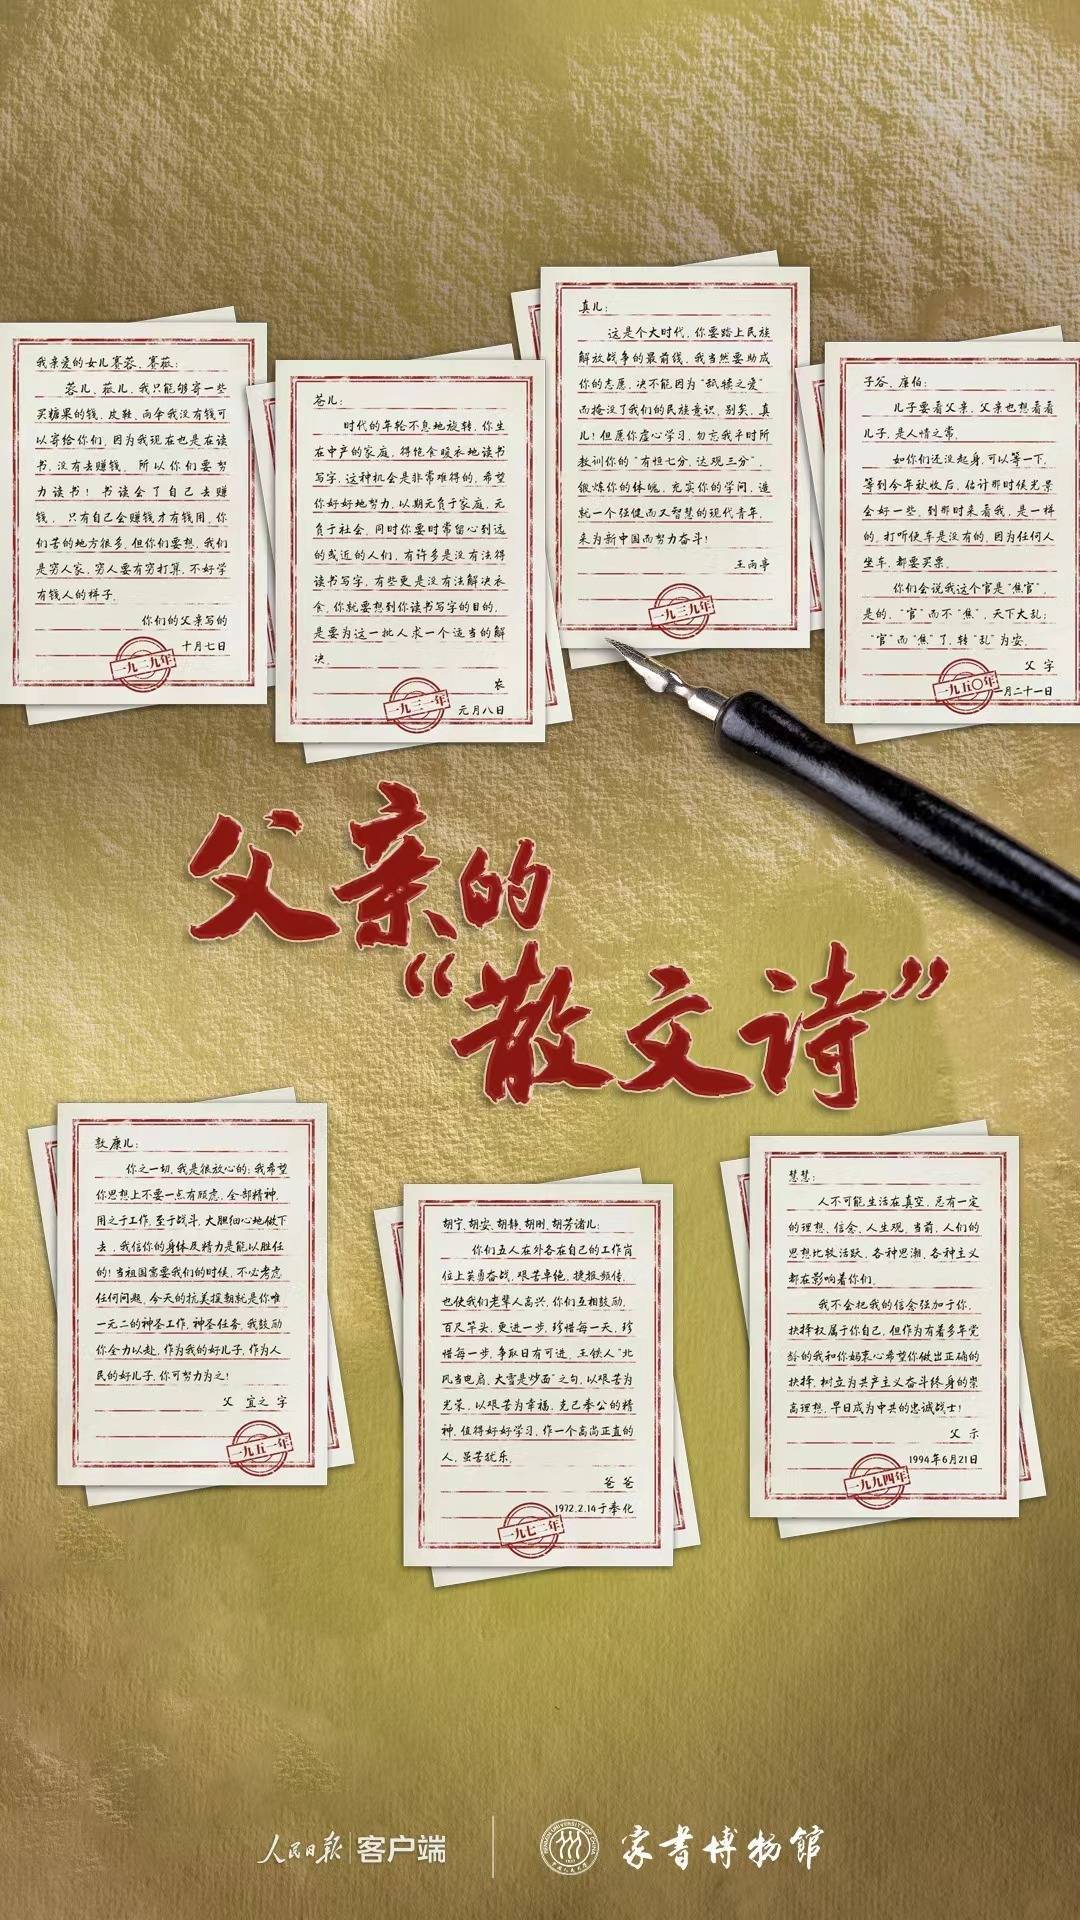 我亲爱的女儿赛蓉、赛莪:
蓉儿、莪儿,我只能够寄一些
买糖果的钱,皮鞋、雨伞我没有钱可
以寄给你们,因为我现在也是在读
书,没有去赚钱。所以你们要努
力读书!书读会了自己去赚
钱,只有自己会赚钱才有钱用。你
们苦的地方很多,但你们要想,我们
是穷人家,穷人要有穷打算,不好学
有钱人的样子。
你们的父亲写的
十月七日
一九二九年
苍儿:
时代的年轮不息地旋转,你生
在中产的家庭,得饱食暖衣地读书
写字,这种机会是非常难得的,希望
你好好地努力,以期无负于家庭,无
负于社会,同时你要时常留心到远
的或近的人们,有许多是没有法得
读书写字,有些更是没有法解决衣
食,你就要想到你读书写字的目的,
是要为这一批人求一个适当的解
决。
农
元月八日
一九三一年
真儿:
这是个大时代,你要踏上民族
解放战争的最前线,我当然要助成
你的志愿,决不能因为“舐犊之爱”
而掩没了我们的民族意识。别矣,真
儿!但愿你虚心学习,勿忘我平时所
教训你的“有恒七分,达观三分”,
锻炼你的体魄,充实你的学问,造
就一个强健而又智慧的现代青年,
来为新中国而努力奋斗!
王雨亭
一九三九年
子谷、廉伯:
儿子要看父亲,父亲也想看看
儿子,是人情之常。
如你们还没起身,可以等一下,
等到今年秋收后,估计那时候光景
会好一些,到那时来看我,是一样
的。打听便车是没有的,因为任何人
坐车,都要买票。
你们会说我这个官是“焦官”,
是的,“官”而不“焦”,天下大乱;
“官”而“焦”了,转“乱”为安。
父 字
一月二十一日
一九五〇年
父亲的
“散文诗”
敦康儿:
你之一切,我是很放心的;我希望
你思想上不要一点有顾虑,全部精神,
用之于工作,至于战斗,大胆细心地做下
去,我信你的身体及精力是能以胜任
的!当祖国需要我们的时候,不必考虑
任何问题,今天的抗美援朝就是你唯
一无二的神圣工作,神圣任务,我鼓励
你全力以赴,作为我的好儿子,作为人
民的好儿子,你可努力为之!
父 宜之 字
一九五一年
胡宁、胡安、胡静、胡刚、胡芳诸儿:
你们五人在外各在自己的工作岗
位上英勇奋战,艰苦卓绝,捷报频传,
也使我们老辈人高兴,你们互相鼓励,
百尺竿头,更进一步,珍惜每一天,珍
惜每一步,争取日有可进。王铁人“北
风当电扇,大雪是炒面”之句,以艰苦为
光荣,以艰苦为幸福,克己奉公的精
神,值得好好学习,作一个高尚正直的
人,虽苦犹乐。
爸爸
1972.2.14于奉化
一九七二年
慧慧:
人不可能生活在真空,总有一定
的理想、信念、人生观。当前,人们的
思想比较活跃,各种思潮、各种主义
都在影响着你们。
我不会把我的信念强加于你,
抉择权属于你自己,但作为有着多年党
龄的我和你妈衷心希望你做出正确的
抉择,树立为共产主义奋斗终身的崇
高理想,早日成为中共的忠诚战士!
父 示
1994年6月21日
一九九四年
人民日报 客户端
家书博物馆